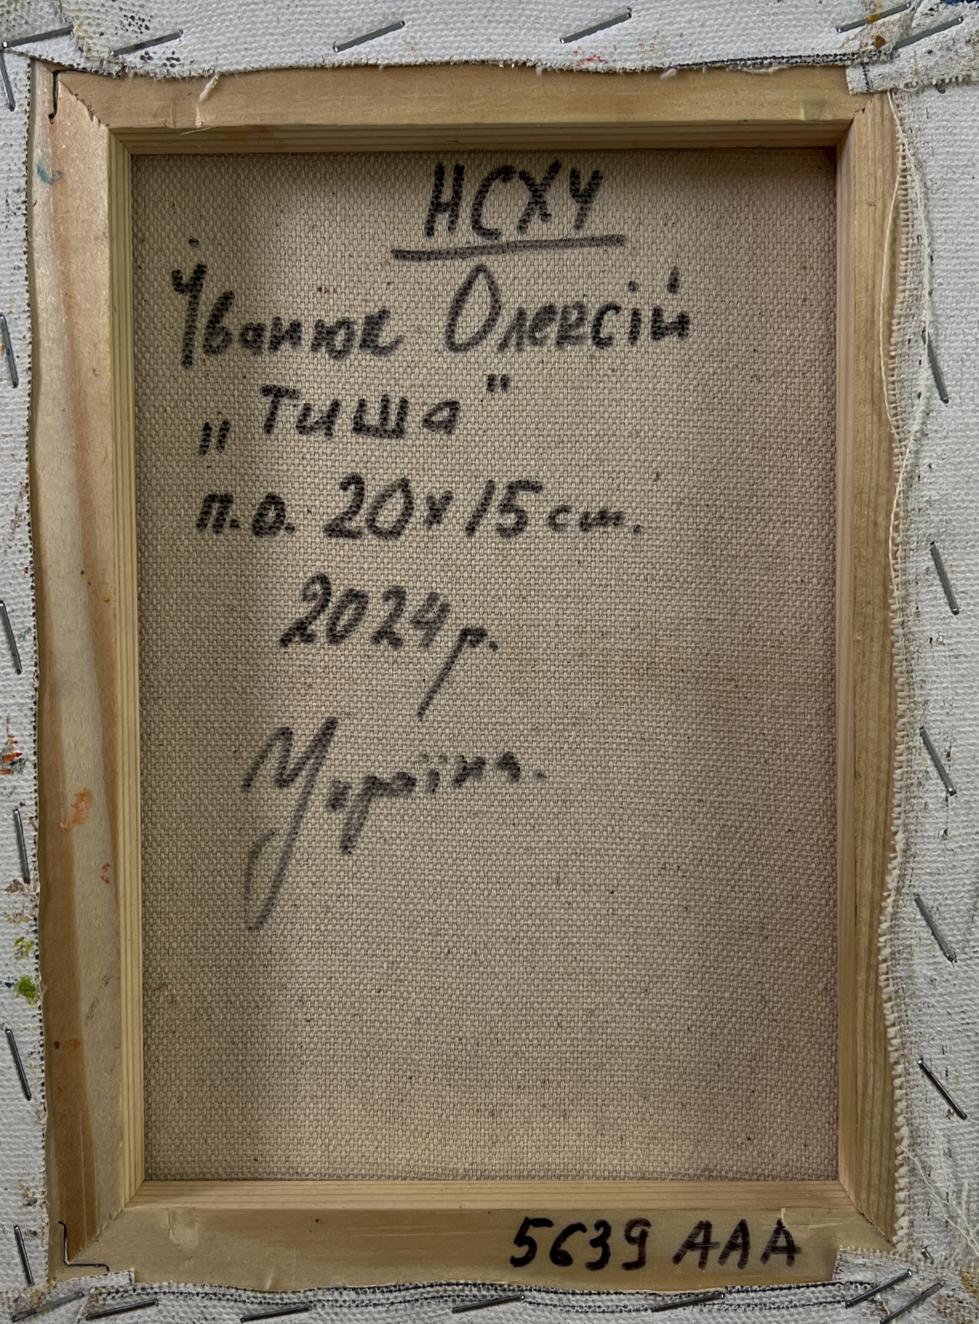 НСХУ
Іванюк Олексій
„Тиша"
п.о. 20х15 см.
2024 р.
Україна.
5639 ААА